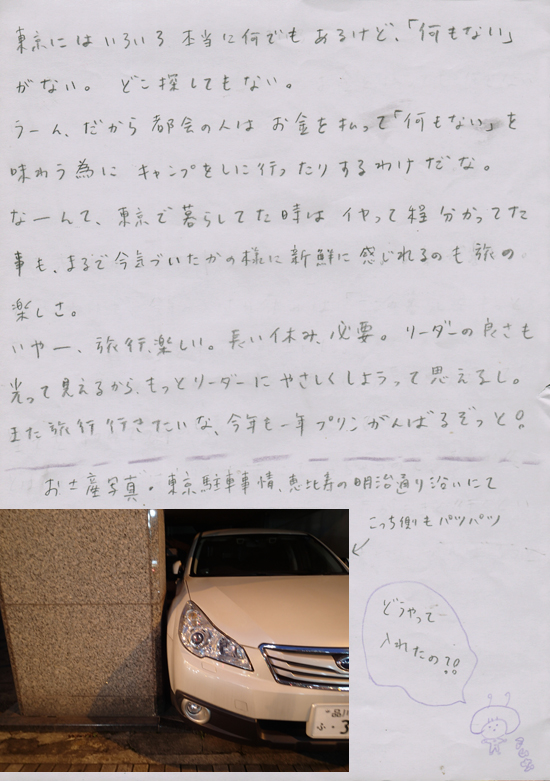 東京にはいろいろ本当に何でもあるけど、「何もない」
がない。どこ探してもない。
うーん、だから都会の人はお金を払って「何もない」を
味わう為にキャンプをしに行ったりするわけだな。
なーんて、東京で暮らしてた時はイヤって程分かってた
事も、まるで今気づいたかの様に新鮮に感じれるのも旅の
楽しさ。
いやー、旅行、楽しい。長い休み、必要。リーダーの良さも
光って見えるから、もっとリーダーにやさしくしようって思えるし。
また旅行行きたいな、今年も一年プリンがんばるぞっと!
おみ産写真・東京駐車事情、恵比寿の明治通り沿いにて
こっち側もパツパツ
どうやって
入れたの?!
品川
ふ・3